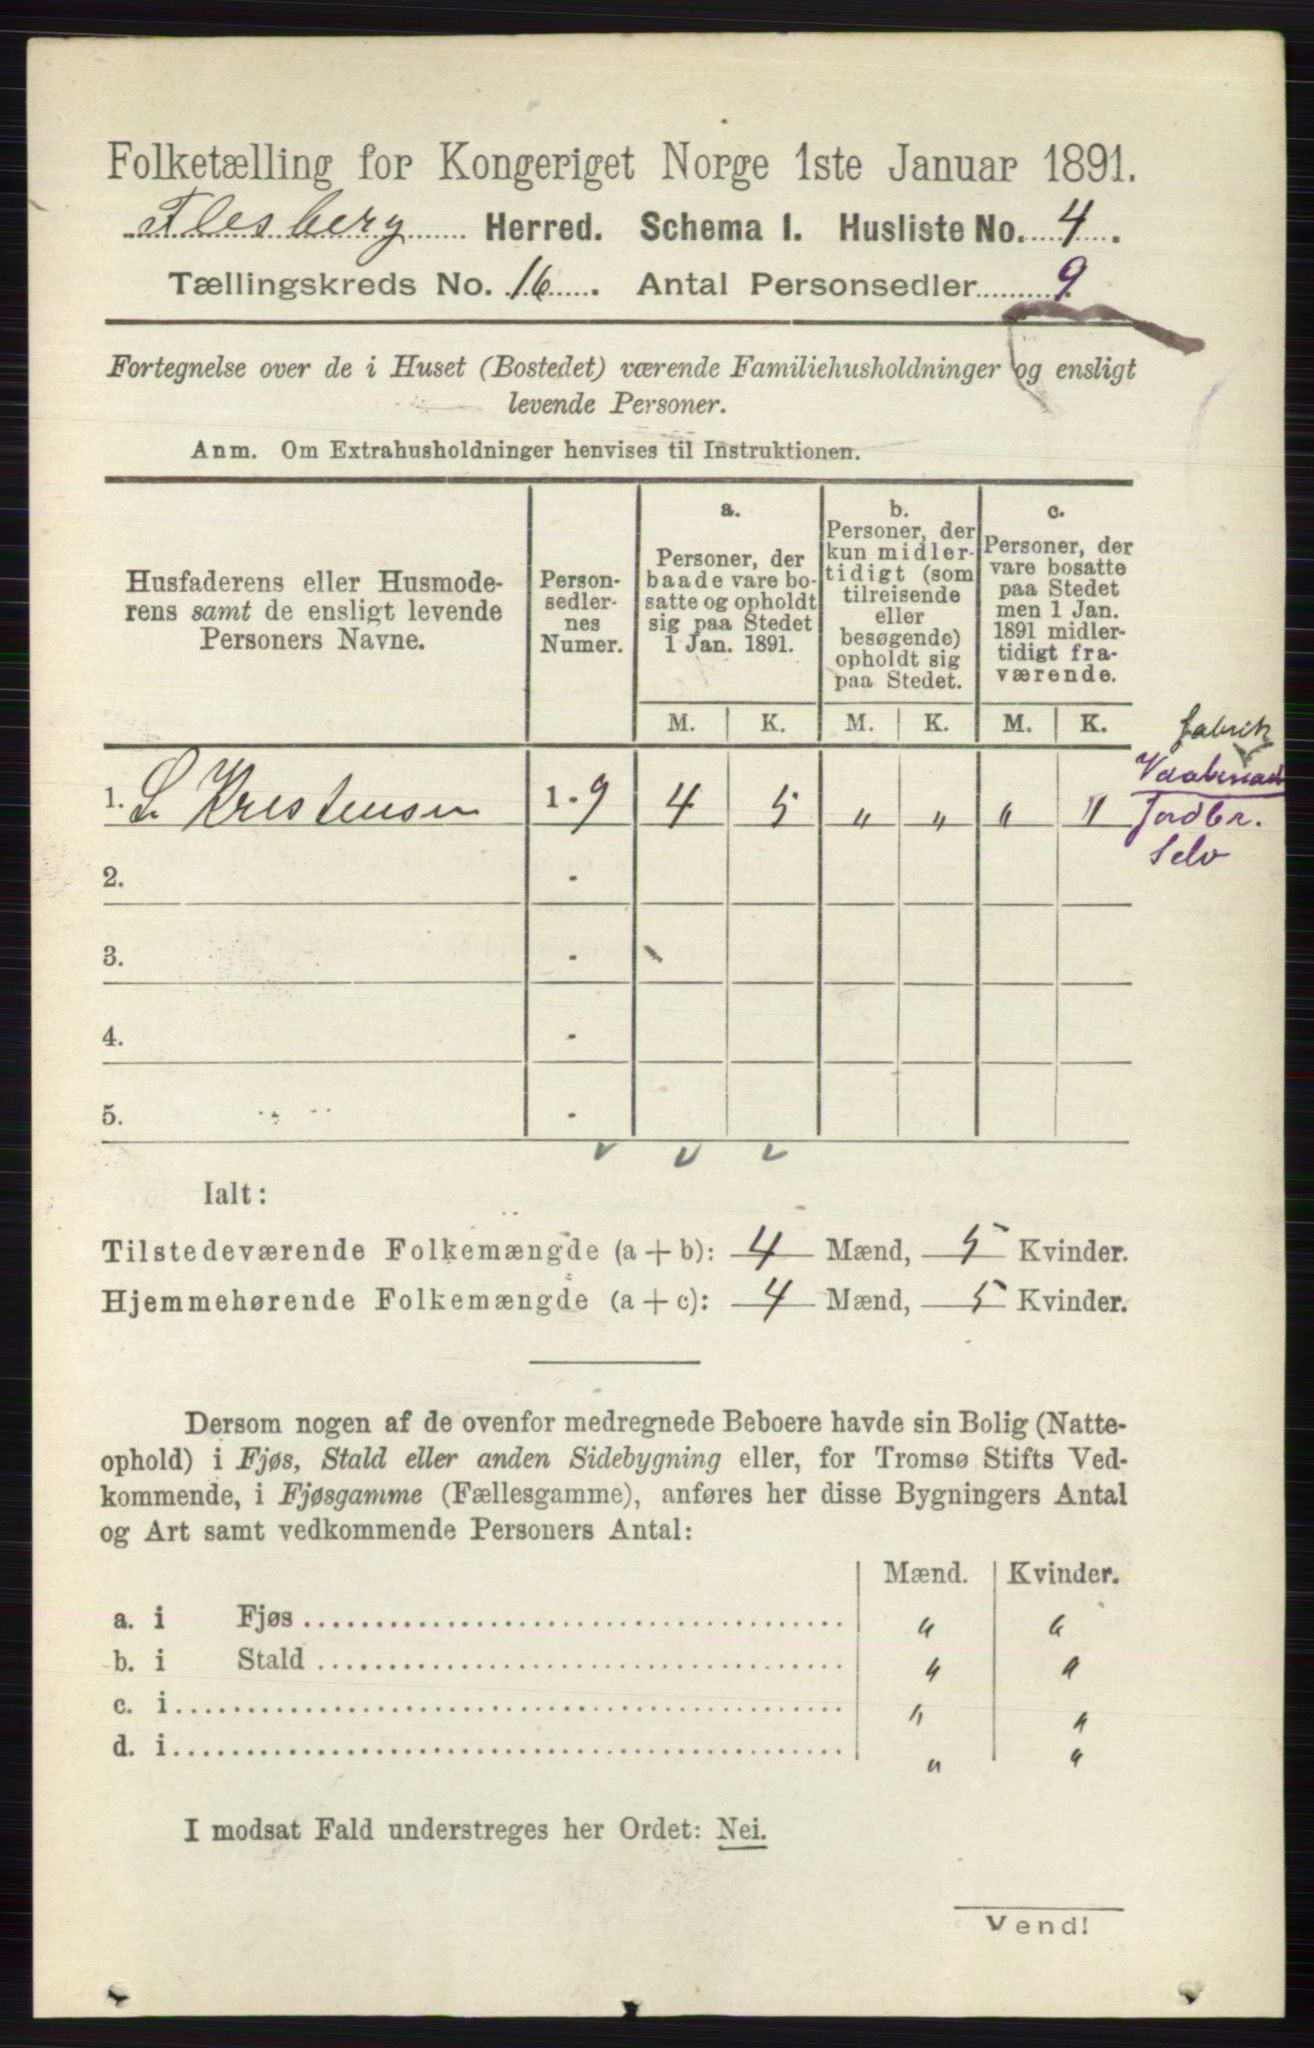 Folketælling for Kongeriget Norge 1ste Januar 1891.
Flesberg Herred. Schema I. Husliste No. 4.
Tællingskreds No. 16. Antal Personsedler 9
Fortegnelse over de i Huset (Bostedet) værende Familiehusholdninger og ensligt
levende Personer.
Anm. Om Extrahusholdninger henvises til Instruktionen.
Husfaderens eller Husmode-
rens samt de ensligt levende
Personers Navne.
Person-
sedler-
nes
Numer.
a.
Personer, der
baade vare bo-
satte og opholdt
sig paa Stedet
1 Jan. 1891.
b.
Personer, der
kun midler-
tidigt (som
tilreisende
eller
besøgende)
opholdt sig
paa Stedet.
c.
Personer, der
vare bosatte
paa Stedet
men 1 Jan.
1891 midler-
tidigt fra-
værende.
M. K. M. K. M. K.
fabrik
1. S. Kristensen 1 - 9 4 5 " " " "
Jordbr.
Selv
2. -
3. -
4. -
5. -
Ialt:
Tilstedeværende Folkemængde (a + b): 4 Mænd, 5 Kvinder.
Hjemmehørende Folkemængde (a + c): 4 Mænd, 5 Kvinder.
Dersom nogen af de ovenfor medregnede Beboere havde sin Bolig (Natte-
ophold) i Fjøs, Stald eller anden Sidebygning eller, for Tromsø Stifts Ved-
kommende, i Fjøsgamme (Fællesgamme), anføres her disse Bygningers Antal
og Art samt vedkommende Personers Antal:
Mænd. Kvinder.
a. i Fjøs " "
b. i Stald " "
c. i " "
d. i " "
I modsat Fald understreges her Ordet: Nei.
Vend!